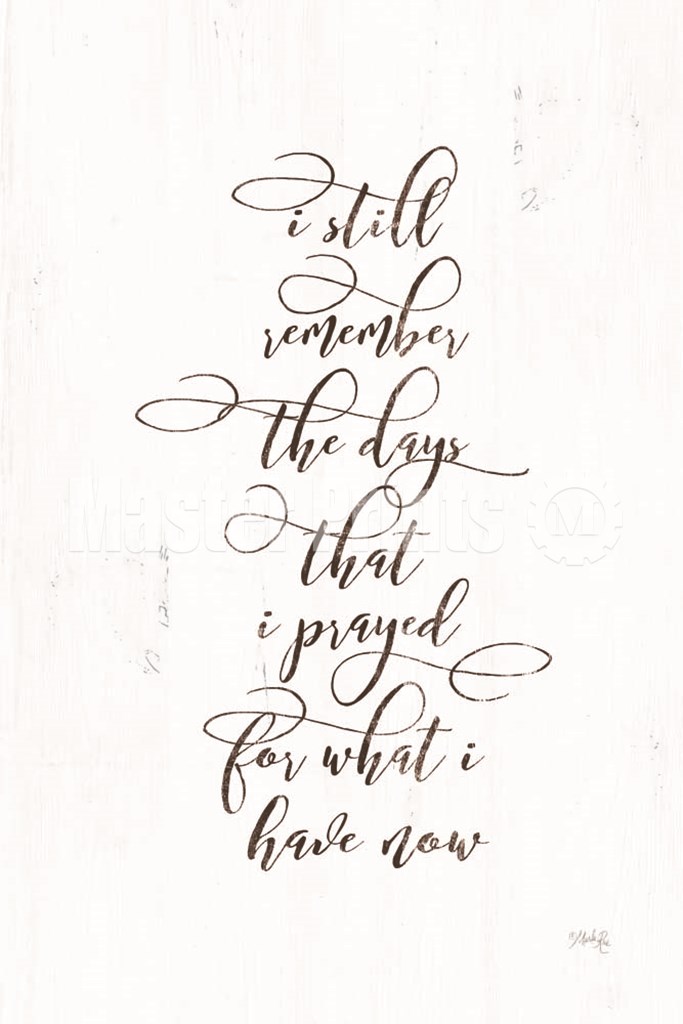 i still
remember
the days
MasterPrints M
that
i prayed
for what i
have now
©Marla Rae